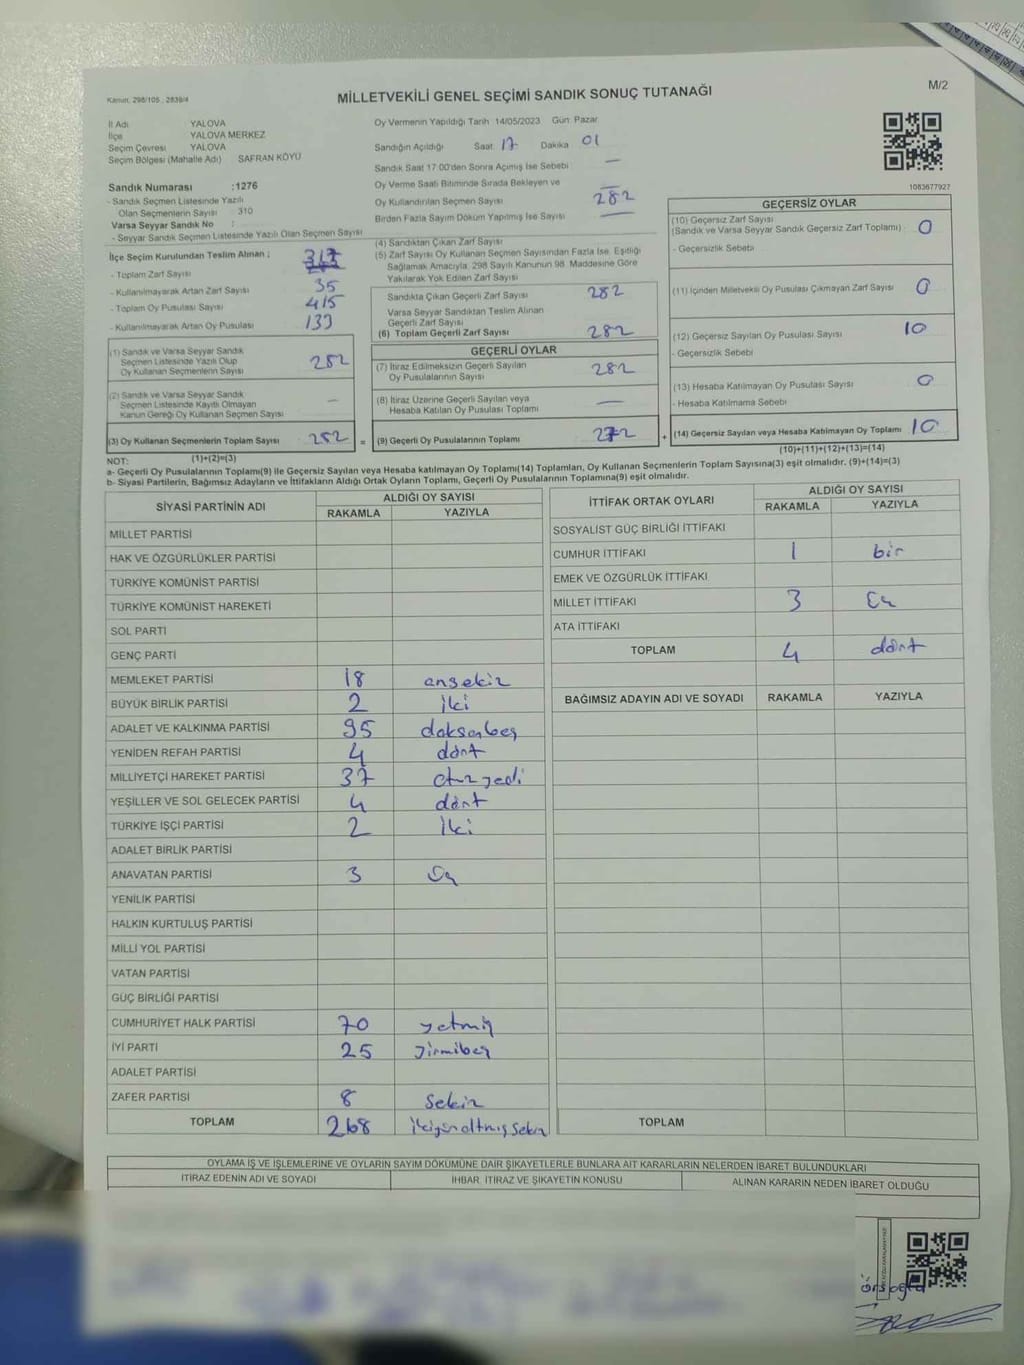 Kanun: 298/105 , 2839/4
MİLLETVEKİLİ GENEL SEÇİMİ SANDIK SONUÇ TUTANAĞI
M/2
İl Adı YALOVA
İlçe YALOVA MERKEZ
Seçim Çevresi YALOVA
Seçim Bölgesi (Mahalle Adı) SAFRAN KÖYÜ
Sandık Numarası :1276
- Sandık Seçmen Listesinde Yazılı
Olan Seçmenlerin Sayısı : 310
Varsa Seyyar Sandık No :
- Seyyar Sandık Seçmen Listesinde Yazılı Olan Seçmen Sayısı
İlçe Seçim Kurulundan Teslim Alınan ;
- Toplam Zarf Sayısı
- Kullanılmayarak Artan Zarf Sayısı 35
- Toplam Oy Pusulası Sayısı 415
- Kullanılmayarak Artan Oy Pusulası 133
(1) Sandık ve Varsa Seyyar Sandık
Seçmen Listesinde Yazılı Olup
Oy Kullanan Seçmenlerin Sayısı 282
(2) Sandık ve Varsa Seyyar Sandık
Seçmen Listesinde Kayıtlı Olmayan
Kanun Gereği Oy Kullanan Seçmen Sayısı —
(3) Oy Kullanan Seçmenlerin Toplam Sayısı 282 =
(1)+(2)=(3)
Oy Vermenin Yapıldığı Tarih 14/05/2023 Gün: Pazar
Sandığın Açıldığı Saat 17 Dakika 01
Sandık Saat 17:00'den Sonra Açılmış İse Sebebi —
Oy Verme Saati Bitiminde Sırada Bekleyen ve —
Oy Kullandırılan Seçmen Sayısı 282
Birden Fazla Sayım Döküm Yapılmış İse Sayısı —
(4) Sandıktan Çıkan Zarf Sayısı
(5) Zarf Sayısı Oy Kullanan Seçmen Sayısından Fazla İse, Eşitliği
Sağlamak Amacıyla, 298 Sayılı Kanunun 98. Maddesine Göre
Yakılarak Yok Edilen Zarf Sayısı
Sandıkta Çıkan Geçerli Zarf Sayısı 282
Varsa Seyyar Sandıktan Teslim Alınan
Geçerli Zarf Sayısı
(6) Toplam Geçerli Zarf Sayısı 282
GEÇERLİ OYLAR
(7) İtiraz Edilmeksizin Geçerli Sayılan
Oy Pusulalarının Sayısı 282
(8) İtiraz Üzerine Geçerli Sayılan veya
Hesaba Katılan Oy Pusulası Toplamı —
(9) Geçerli Oy Pusulalarının Toplamı 272 +
1083677927
GEÇERSİZ OYLAR
(10) Geçersiz Zarf Sayısı
(Sandık ve Varsa Seyyar Sandık Geçersiz Zarf Toplamı) 0
- Geçersizlik Sebebi
(11) İçinden Milletvekili Oy Pusulası Çıkmayan Zarf Sayısı 0
(12) Geçersiz Sayılan Oy Pusulası Sayısı 10
- Geçersizlik Sebebi
(13) Hesaba Katılmayan Oy Pusulası Sayısı 0
- Hesaba Katılmama Sebebi
(14) Geçersiz Sayılan veya Hesaba Katılmayan Oy Toplamı 10
(10)+(11)+(12)+(13)=(14)
NOT:
a- Geçerli Oy Pusulalarının Toplamı(9) ile Geçersiz Sayılan veya Hesaba katılmayan Oy Toplamı(14) Toplamları, Oy Kullanan Seçmenlerin Toplam Sayısına(3) eşit olmalıdır. (9)+(14)=(3)
b- Siyasi Partilerin, Bağımsız Adayların ve İttifakların Aldığı Ortak Oyların Toplamı, Geçerli Oy Pusulalarının Toplamına(9) eşit olmalıdır.
SİYASİ PARTİNİN ADI ALDIĞI OY SAYISI
RAKAMLA YAZIYLA
MİLLET PARTİSİ
HAK VE ÖZGÜRLÜKLER PARTİSİ
TÜRKİYE KOMÜNİST PARTİSİ
TÜRKİYE KOMÜNİST HAREKETİ
SOL PARTİ
GENÇ PARTİ
MEMLEKET PARTİSİ 18 onsekiz
BÜYÜK BİRLİK PARTİSİ 2 iki
ADALET VE KALKINMA PARTİSİ 95 doksanbeş
YENİDEN REFAH PARTİSİ 4 dört
MİLLİYETÇİ HAREKET PARTİSİ 37 otuzyedi
YEŞİLLER VE SOL GELECEK PARTİSİ 4 dört
TÜRKİYE İŞÇİ PARTİSİ 2 iki
ADALET BİRLİK PARTİSİ
ANAVATAN PARTİSİ 3 üç
YENİLİK PARTİSİ
HALKIN KURTULUŞ PARTİSİ
MİLLİ YOL PARTİSİ
VATAN PARTİSİ
GÜÇ BİRLİĞİ PARTİSİ
CUMHURİYET HALK PARTİSİ 70 yetmiş
İYİ PARTİ 25 yirmibeş
ADALET PARTİSİ
ZAFER PARTİSİ 8 sekiz
TOPLAM 268 ikiyüzaltmışsekiz
İTTİFAK ORTAK OYLARI ALDIĞI OY SAYISI
RAKAMLA YAZIYLA
SOSYALİST GÜÇ BİRLİĞİ İTTİFAKI
CUMHUR İTTİFAKI 1 bir
EMEK VE ÖZGÜRLÜK İTTİFAKI
MİLLET İTTİFAKI 3 üç
ATA İTTİFAKI
TOPLAM 4 dört
BAĞIMSIZ ADAYIN ADI VE SOYADI RAKAMLA YAZIYLA
TOPLAM
OYLAMA İŞ VE İŞLEMLERİNE VE OYLARIN SAYIM DÖKÜMÜNE DAİR ŞİKAYETLERLE BUNLARA AİT KARARLARIN NELERDEN İBARET BULUNDUKLARI
İTİRAZ EDENİN ADI VE SOYADI İHBAR, İTİRAZ VE ŞİKAYETİN KONUSU ALINAN KARARIN NEDEN İBARET OLDUĞU